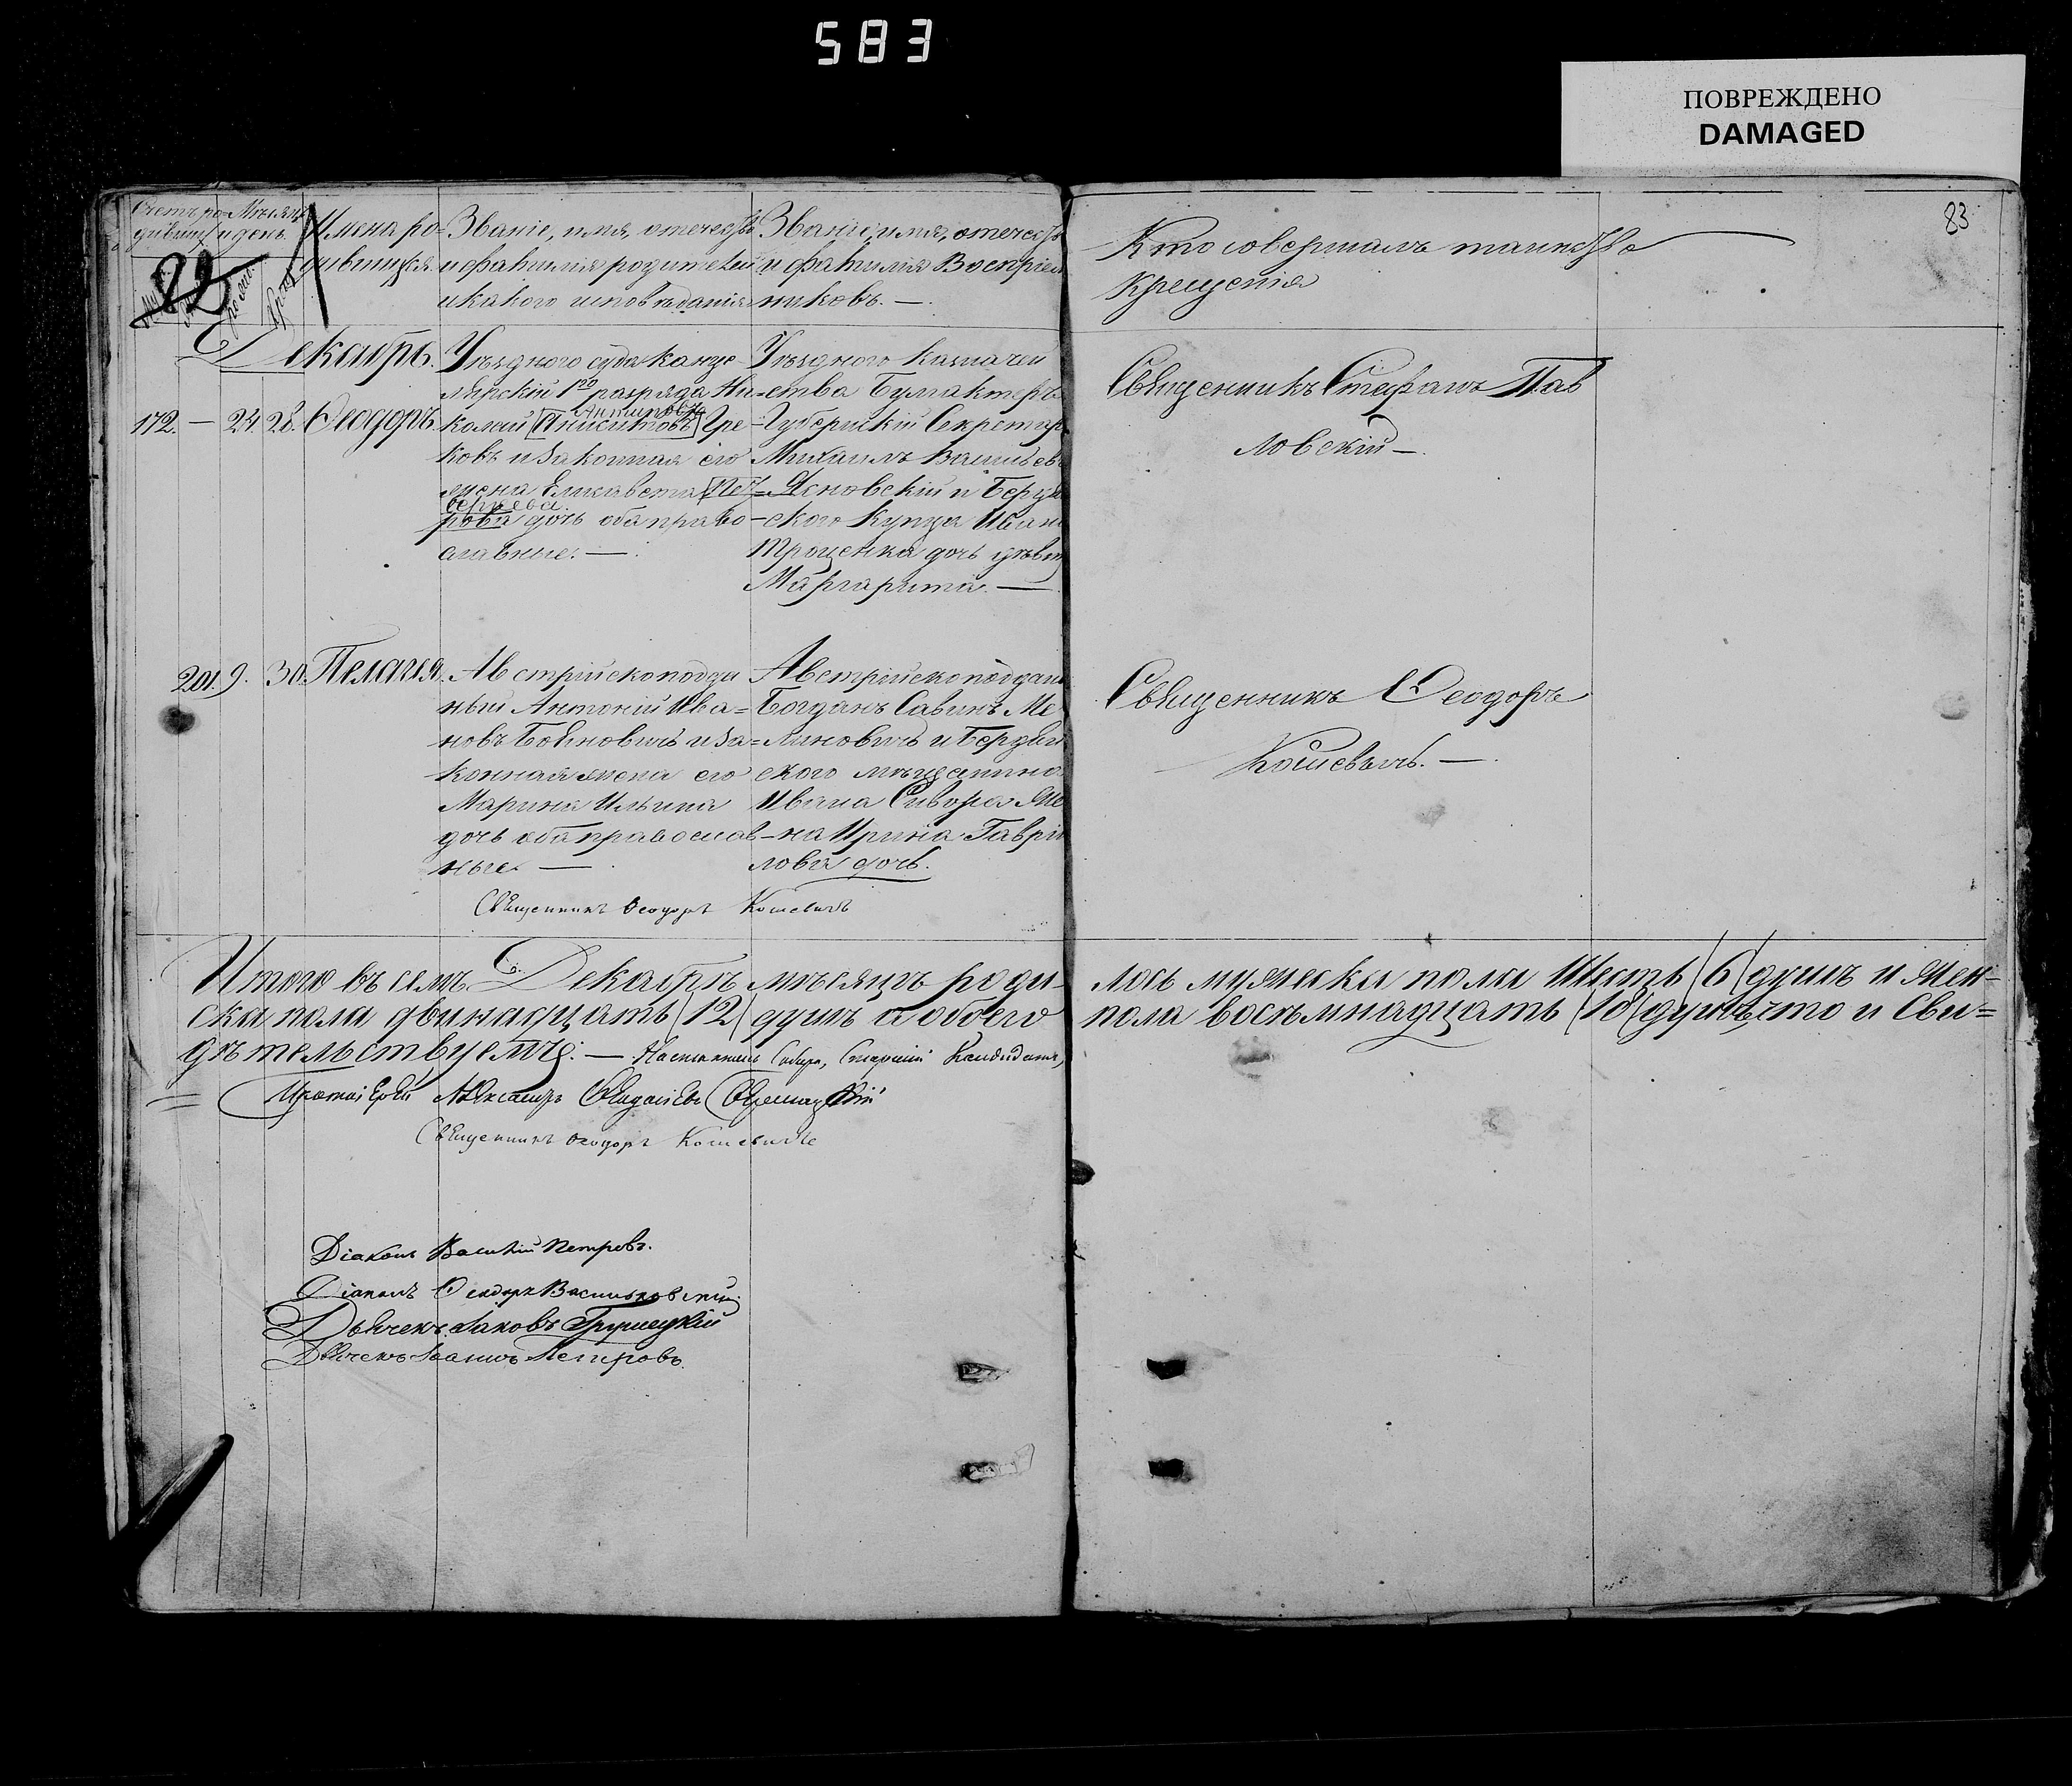 583
ПОВРЕЖДЕНО
DAMAGED
83
Счетъ ро- Мѣсяцъ
дившихся и день
Имена ро-
дившихся.
Званіе, имя, отечество
и фамилія родителей
и какого исповѣданія
Званіе, имя, отечество
и фамилія Воспріем
никовъ. —
Кто совершалъ таинство
крещенія
82
Декабрь.
172. — 24. 28. Ѳеодоръ.
Уѣзднаго суда канце-
лярскій 1го разряда Ни-
Антиповъ
колай Аникитовъ Гре-
ковъ и законная его
жена Елисавета Пет
Сергѣева
рова дочь оба право-
славные. —
Уѣзднаго казначей
ства Бухгалтеръ
Губернскій Секретарь
Михаилъ Васильевъ
Яновскій и Бердян
скаго купца Иван
Троценка дочь дѣвиц
Маргарита. —
Священникъ Стефанъ Пав
ловскій —
201. 9. 30. Пелагія.
Австрійскоподда
ный Антоній Ива=
новъ Боиновичъ и за=
конная жена его
Марина Ильина
дочь оба православ-
ные. —
Австрійскоподдан
Богданъ Савинъ Ме
линовичъ и Бердян
скаго мѣщанина
Ивана Сивора же
на Ирина Гаврі
лова дочь.
Священникъ Ѳеодоръ
Кошевичъ. —
Священникъ Ѳеодоръ Кошевичъ
Итого въ семъ Декабрѣ мѣсяцѣ роди-лось мужеска пола Шесть /6/ душъ и жен-
ска пола двинадцать /12/ душъ а обоего пола восѣмнадцать /18/ душъ что и Сви=
дѣтельствуемъ: — Настоятель Собора, Старшій Кандидатъ,
Протоіерей Александръ
Священникъ Ѳеодоръ Кошевичъ
Діаконъ Василій Петровъ.
Діаконъ Ѳеодоръ Васильковскій
Дьячекъ Іаковъ Грушецкій
Дьячекъ Іоаннъ Петровъ.